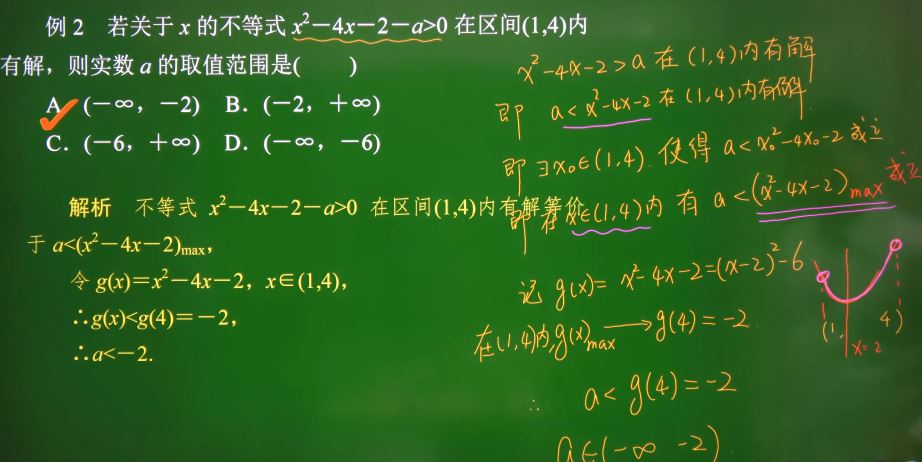 例 2 若关于 x 的不等式 x²－4x－2－a>0 在区间(1,4)内
有解，则实数 a 的取值范围是(　　)
A.(－∞，－2) B.(－2，＋∞)
C.(－6，＋∞) D.(－∞，－6)
解析 不等式 x²－4x－2－a>0 在区间(1,4)内有解等价
于 a<(x²－4x－2)max，
令 g(x)=x²－4x－2，x∈(1,4)，
∴g(x)<g(4)=－2，
∴a<－2.
x²-4x-2>a 在 (1,4)内有解
即 a<x²-4x-2 在 (1,4)内有解.
即 ∃x₀∈(1,4). 使得 a<x₀²-4x₀-2 成立
即在 x∈(1,4)内 有 a<(x²-4x-2)max 成立
记 g(x)= x²-4x-2=(x-2)²-6
在(1,4)内,g(x)max ⟶ g(4)=-2.
∴ a< g(4)=-2
a∈(-∞ -2)
(1, 4)
x=2